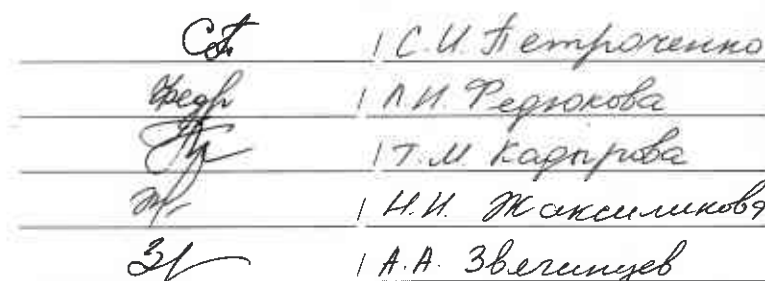 СП / С.И. Петроченко
Федр / Л.И. Федюкова
/ Т.М. Кадырова
/ Н.И. Жаксиликова
/ А.А. Звягинцев